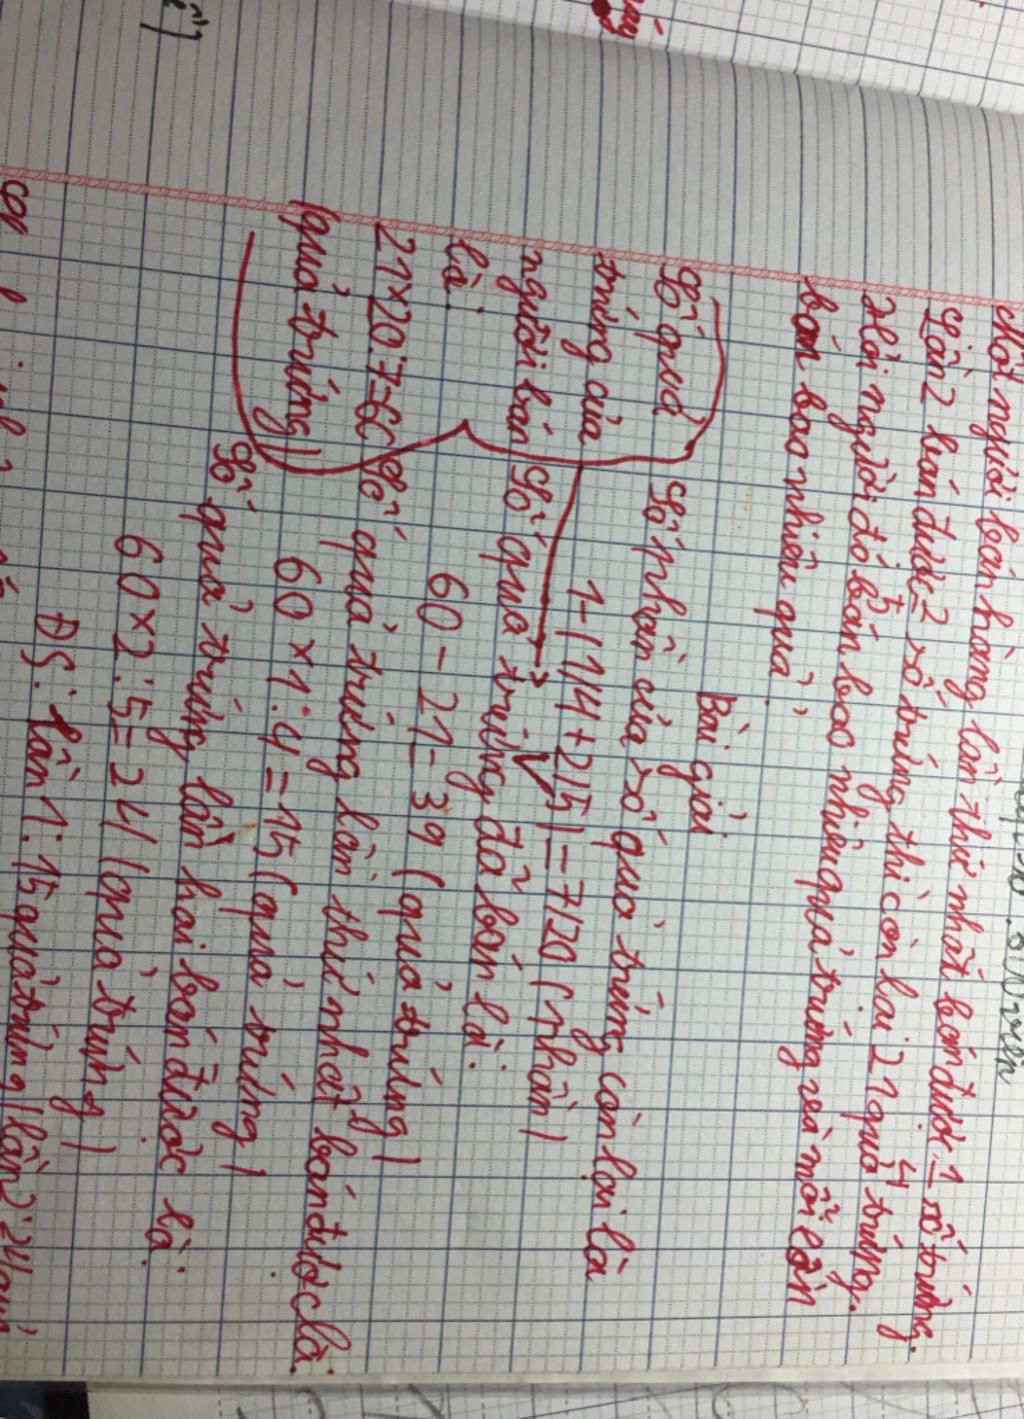 Một người bán hàng lần thứ nhất bán được 1/4 số trứng.
Lần 2 bán được 2/5 số trứng thì còn lại 21 quả trứng.
Hỏi người đó bán bao nhiêu quả trứng và mỗi lần
bán bao nhiêu quả?
Bài giải
Số phần của số quả trứng còn lại là
1-(1/4+2/5)=7/20(phần)
Số quả
trứng của
người bán
là:
21×20:7=60
(quả trứng)
Số quả trứng đã bán là:
60-21=39(quả trứng)
Số quả trứng lần thứ nhất bán được là:
60×1:4=15(quả trứng)
Số quả trứng lần hai bán được là:
60×2:5=24(quả trứng)
ĐS: lần 1: 15 quả trứng, lần 2: 24 quả